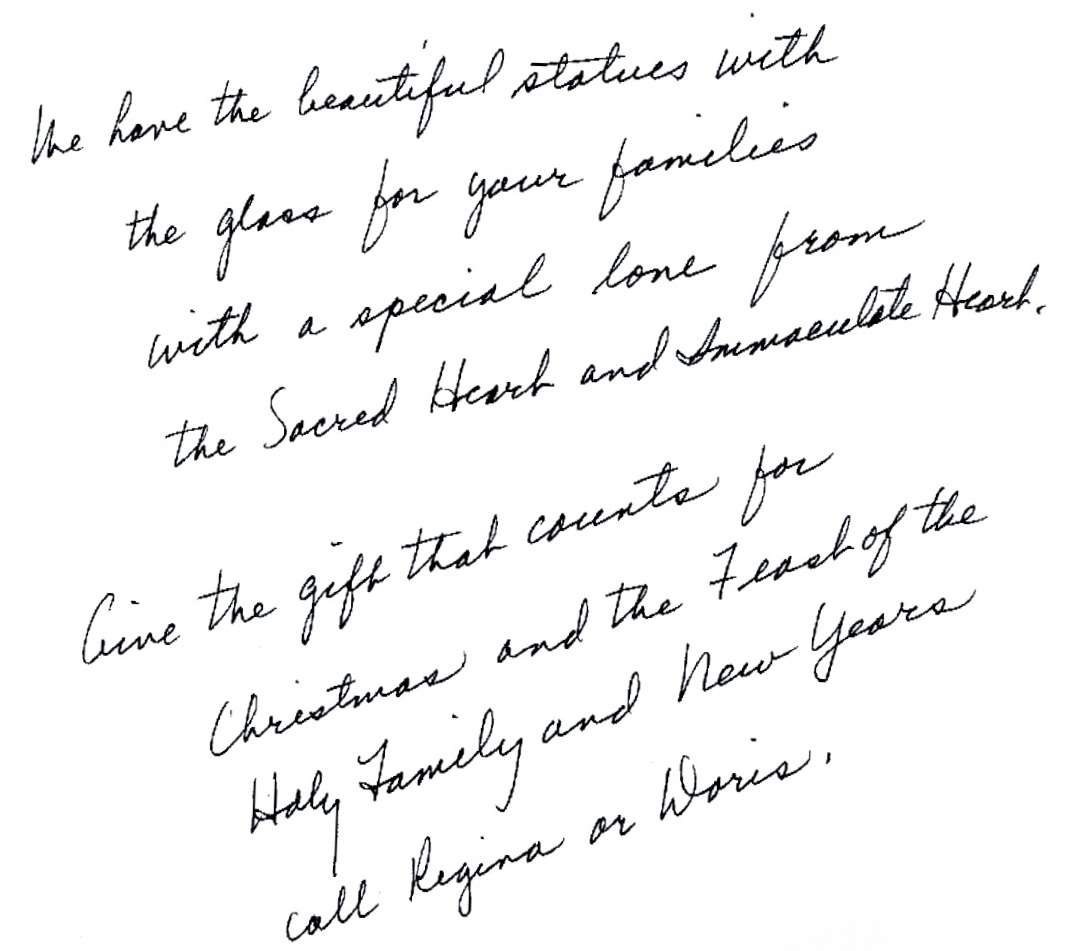 We have the beautiful statues with
the glass for your families
with a special love from
the Sacred Heart and Immaculate Heart.
Give the gift that counts for
Christmas and the Feast of the
Holy Family and New Years
call Regina or Doris.